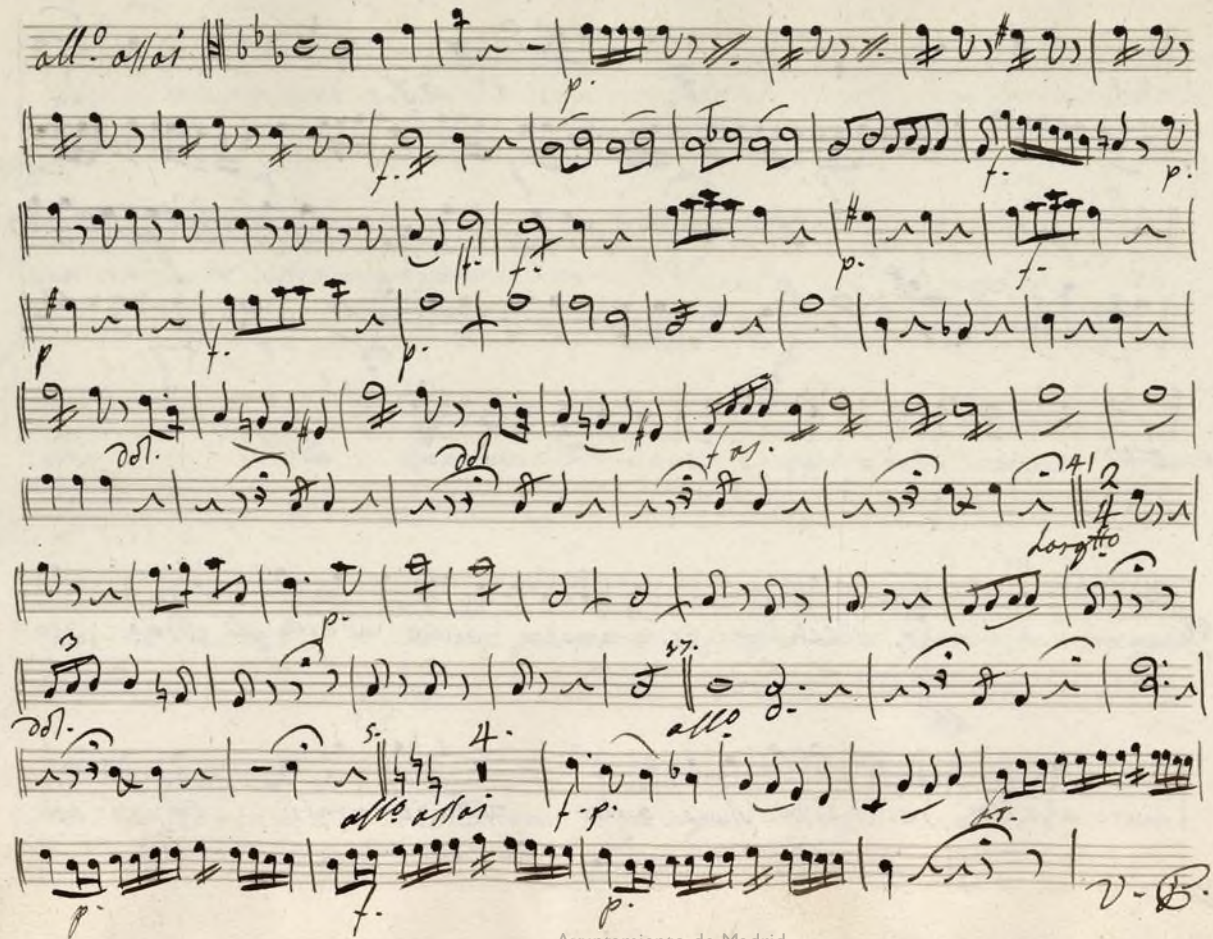 all.º assai p.
f. f. p.
f. f. p. f.
p f. p.
dol. dol f as.
41 2 4 Largtto
p.
3 37. allo
dol. 5. 4. allo assai f. p. fr.
p. f. p. V. P.
Ayuntamiento de Madrid